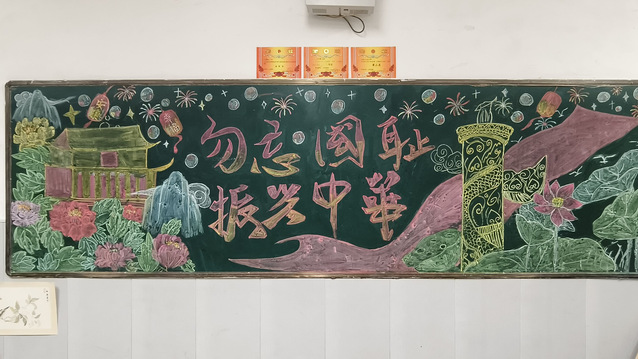 勿忘国耻
振兴中華